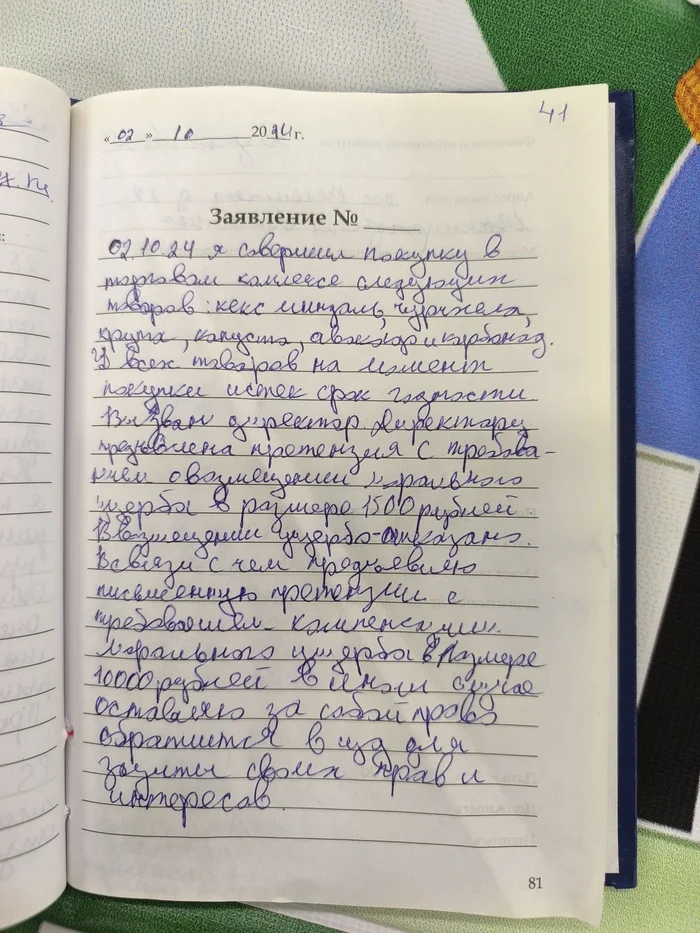 41
«02» 10 2024 г.
Заявление №
02.10.24 я совершил покупку в
торговом комлексе следующих
товаров: кекс миндаль, чурчхела,
крупа, капуста, авокадо и карбонад.
У всех товаров на момент
покупки истек срок годности.
Вызван директор. Директору
предъявлена претензия с требова-
нием о возмещении морального
ущерба в размере 1500 рублей.
В возмещении ущерба отказано.
В связи с чем предъявляю
письменную претензии с
требованием компенсации
морального ущерба в размере
10000 рублей в ином случае
оставляю за собой право
обратится в суд для
защиты своих прав и
интересов.
81